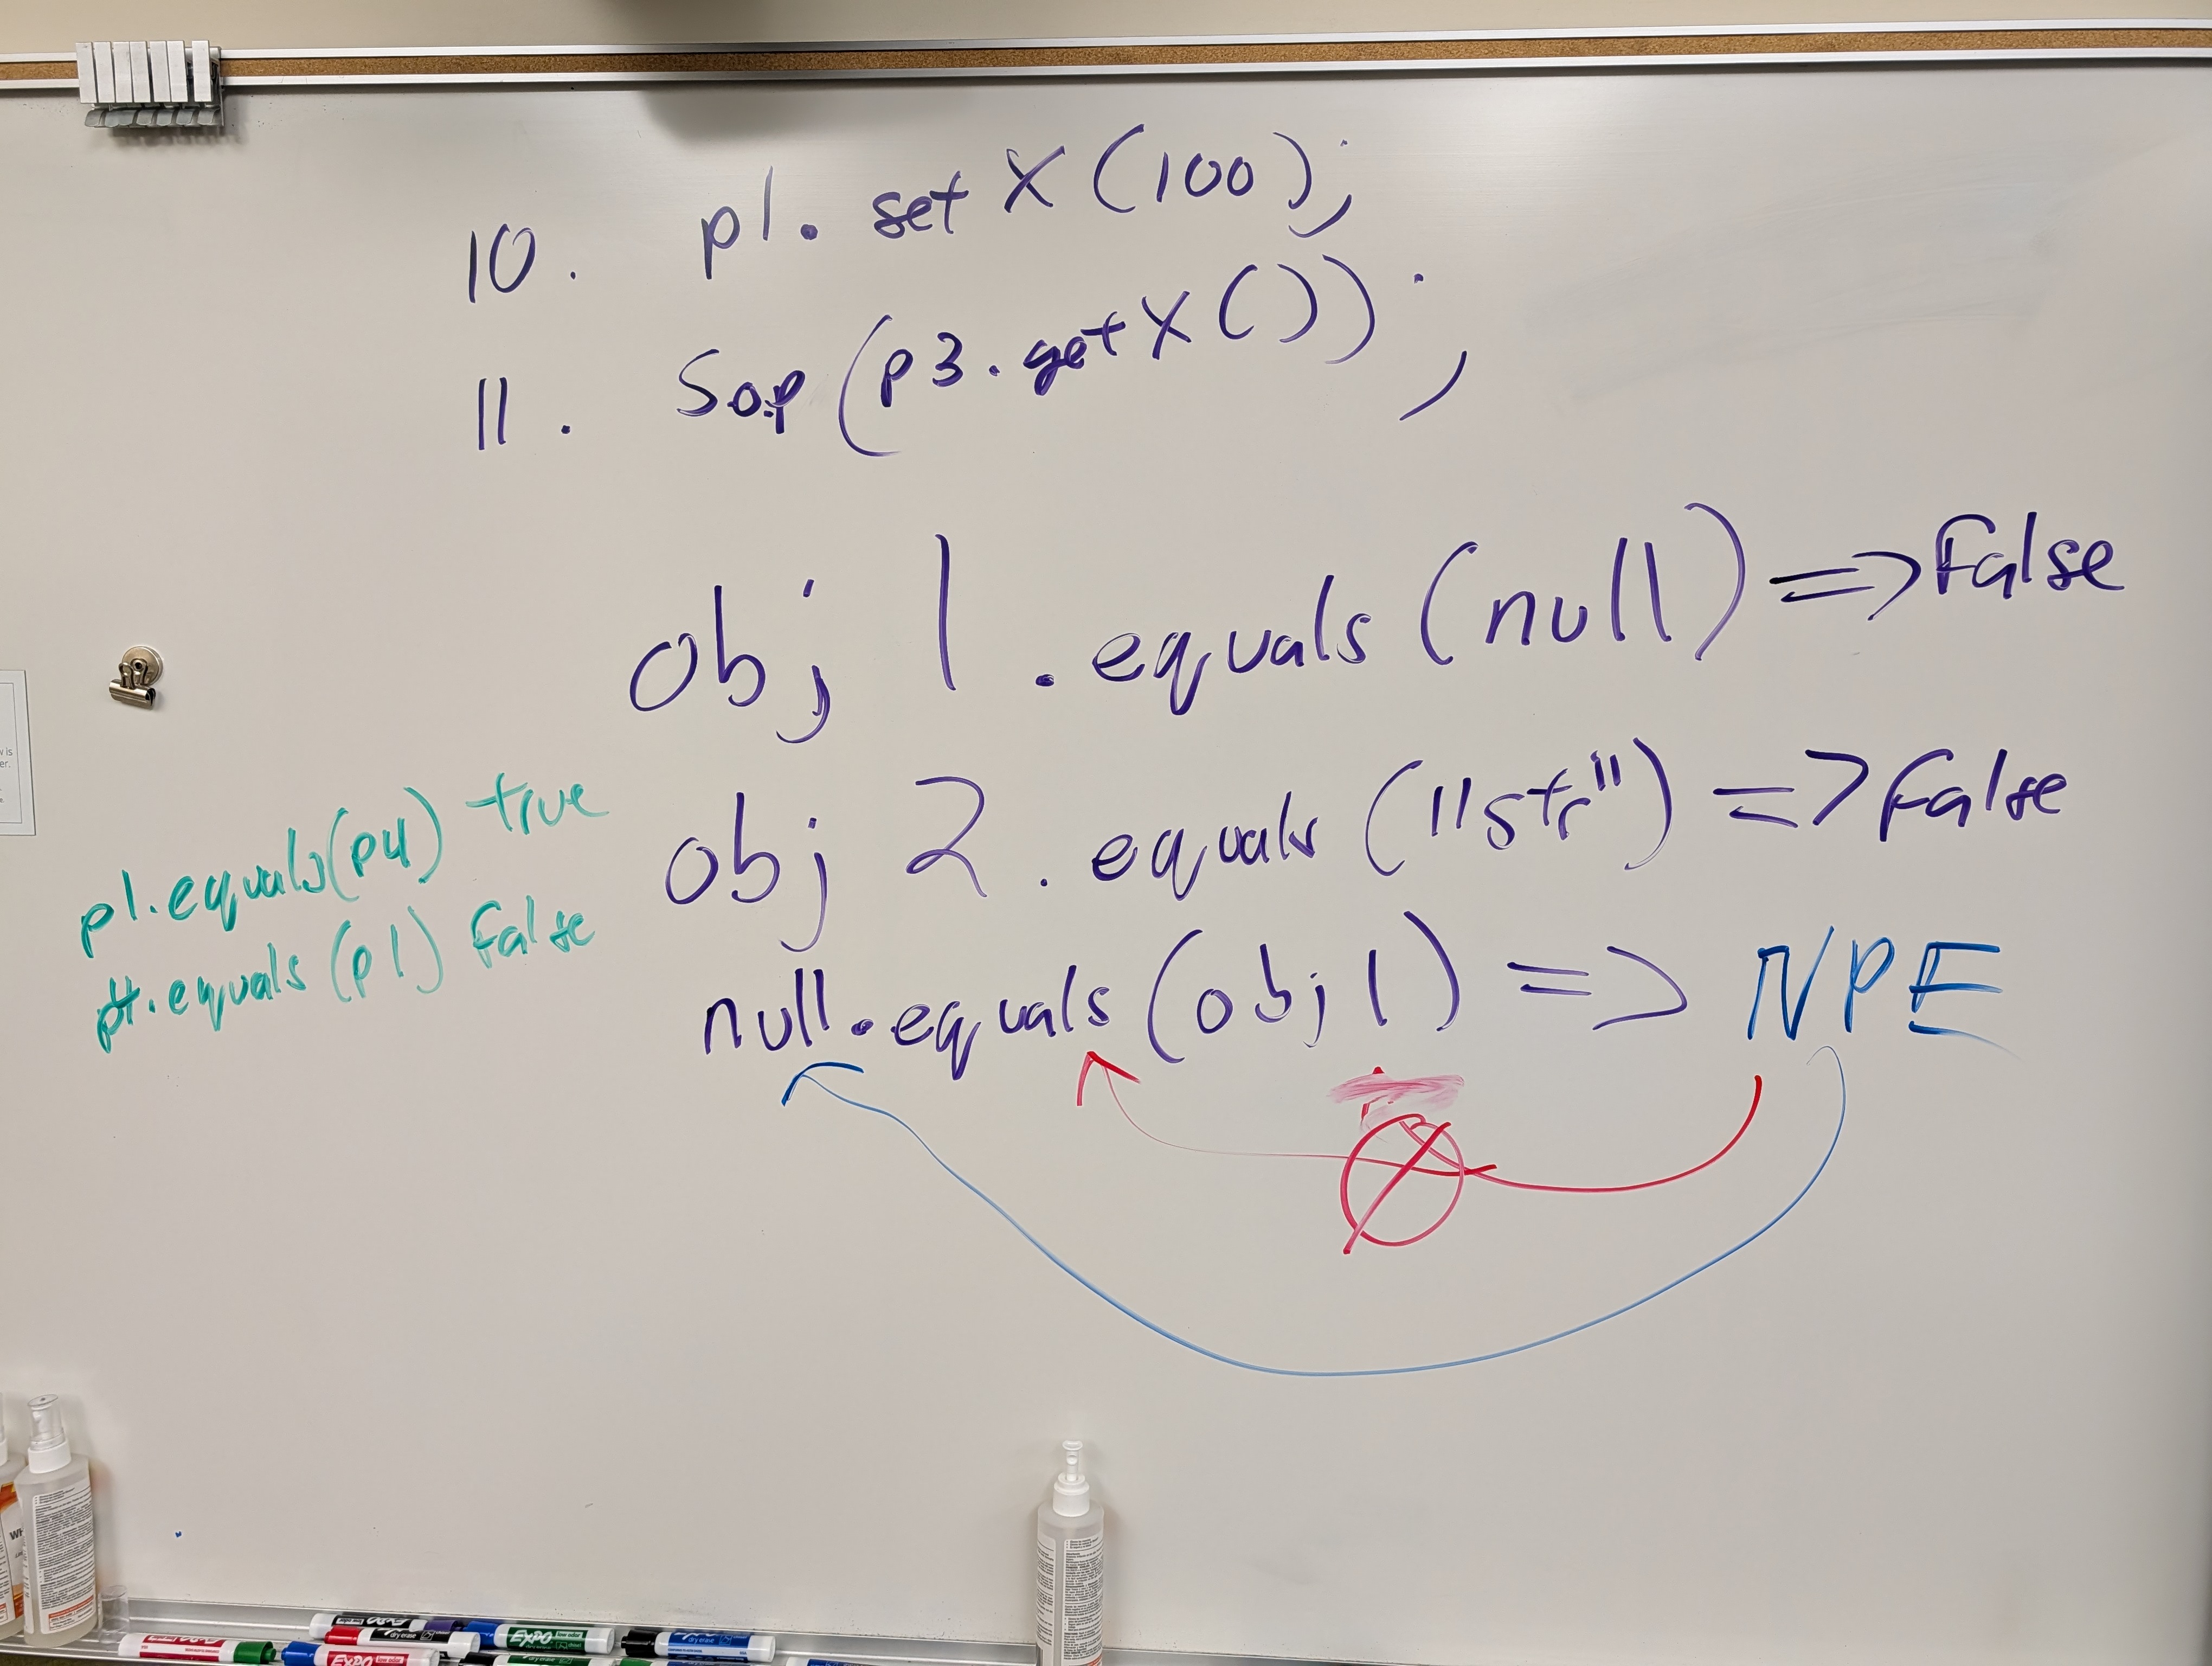 10. p1.setX(100);
11. Sop(p3.getX());
obj1.equals(null) => False
obj2.equals("str") => False
null.equals(obj1) => NPE
p1.equals(p4) true
p4.equals(p1) False
EXPO
EXPO